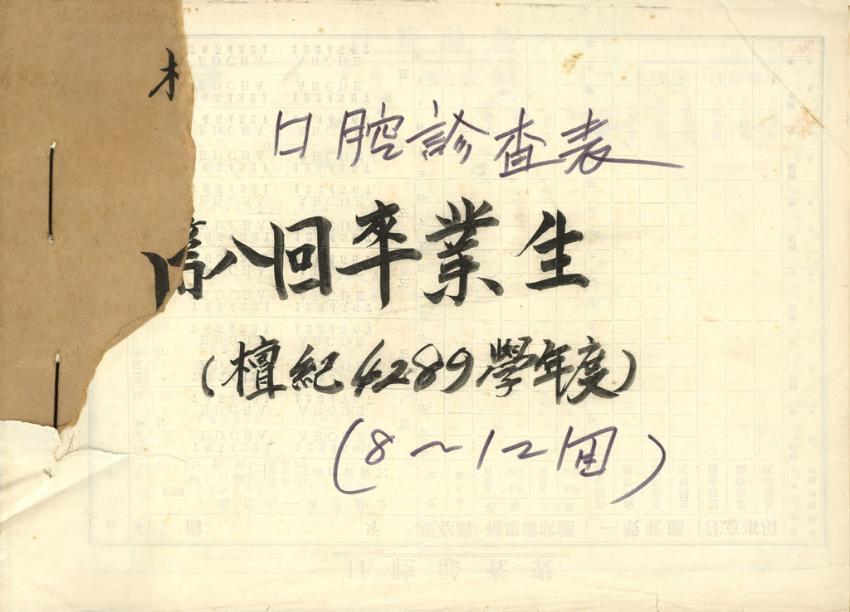 口腔診查表
第八回卒業生
(檀紀4289學年度)
(8~12回)